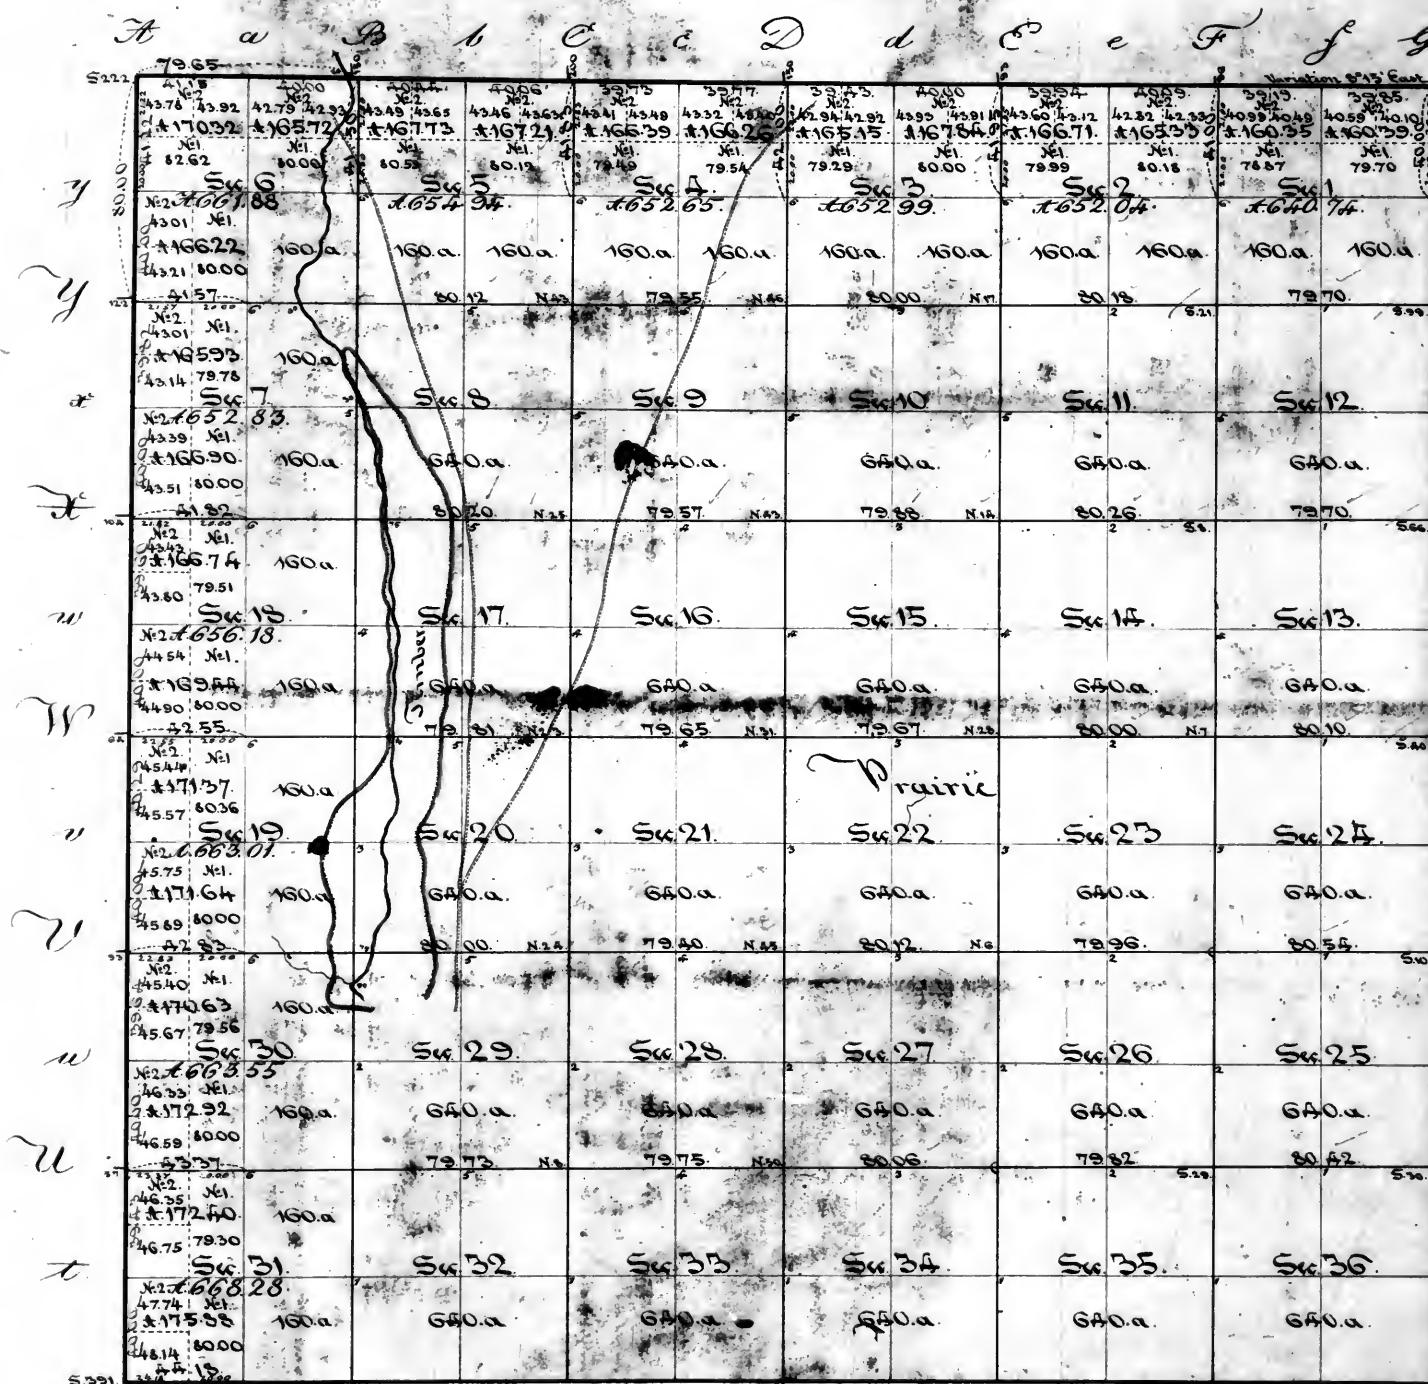 A a B b C c D d E e F f G
79.65
S222 Variation 8°15' East
41.15 40.00 40.44 40.06 39.73 39.77 39.43 40.00 39.94 40.09 39.19 39.85
No2 No2 No2 No2 No2 No2 No2 No2 No2 No2 No2 No2
43.78 43.92 42.79 42.92 43.49 43.65 43.46 43.63 43.41 43.49 43.32 42.94 42.92 43.93 43.91 43.60 43.12 42.82 42.33 40.99 40.49 40.59 40.10
A170.32 A165.72 A167.73 A167.21 A166.39 A166.26 A165.15 A167.84 A166.71 A165.33 A160.35 A160.39
No1 No1 No1 No1 No1 No1 No1 No1 No1 No1 No1
82.62 80.00 80.53 80.12 79.49 79.54 79.29 80.00 79.99 80.18 78.87 79.70
y Sec 6 Sec 5 Sec 4 Sec 3 Sec 2 Sec 1
No2 A661.88 A654.94 A652.65 A652.99 A652.04 A640.74
43.01 No1
80.00
A166.22 160.a 160.a 160.a 160.a 160.a 160.a 160.a 160.a 160.a 160.a 160.a
43.21 80.00
Y 41.57 80.12 N.43 79.55 N.46 80.00 N.17 80.18 S.21 79.70 S.99
No2 No1
43.01
A165.93 160.a
43.14 79.78
x Sec 7 Sec 8 Sec 9 Sec 10 Sec 11 Sec 12
No2 A652.83
43.39 No1
A166.90 160.a 640.a 640.a 640.a 640.a 640.a
43.51 80.00
X 41.82 80.20 N.25 79.57 N.43 79.88 N.14 80.26 S.8 79.70 S.66
No2 No1
43.43
A166.74 160.a
43.80 79.51
w Sec 18 Sec 17 Sec 16 Sec 15 Sec 14 Sec 13
No2 A656.18
44.54 No1
Timber
A169.44 160.a 640.a 640.a 640.a 640.a 640.a
44.90 80.00
W 42.55 79.81 N.23 79.65 N.31 79.67 N.28 80.00 N.7 80.10 S.40
No2 No1
45.44
Prairie
A171.37 160.a
45.57 80.36
v Sec 19 Sec 20 Sec 21 Sec 22 Sec 23 Sec 24
No2 A663.01
45.75 No1
A171.64 160.a 640.a 640.a 640.a 640.a 640.a
45.89 80.00
V 42.83 80.00 N.24 79.40 N.45 80.12 N.6 79.96 80.54 S.10
No2 No1
45.40
A170.63 160.a
45.67 79.56
u Sec 30 Sec 29 Sec 28 Sec 27 Sec 26 Sec 25
No2 A663.55
46.33 No1
A172.92 160.a 640.a 640.a 640.a 640.a 640.a
46.59 80.00
U 43.37 79.73 N.8 79.75 N.30 80.06 79.82 S.29 80.42 S.30
No2 No1
46.35
A172.40 160.a
46.75 79.30
t Sec 31 Sec 32 Sec 33 Sec 34 Sec 35 Sec 36
No2 A668.28
47.74 No1
A175.38 160.a 640.a 640.a 640.a 640.a 640.a
48.14 80.00
44.18
S.391